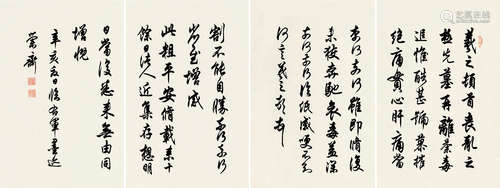 羲之頓首喪亂之
極先墓再離荼毒
追惟酷甚號慕摧
絕痛貫心肝痛當
奈何奈何雖即脩復
未獲奔馳哀毒益深
奈何奈何臨紙感哽不知
何言羲之頓首
割不能自勝奈何奈何
省慰增感
此粗平安脩載來十
餘日諸人近集存想明
日當復悉來無由同
增慨
辛亥夏日臨右軍書迹